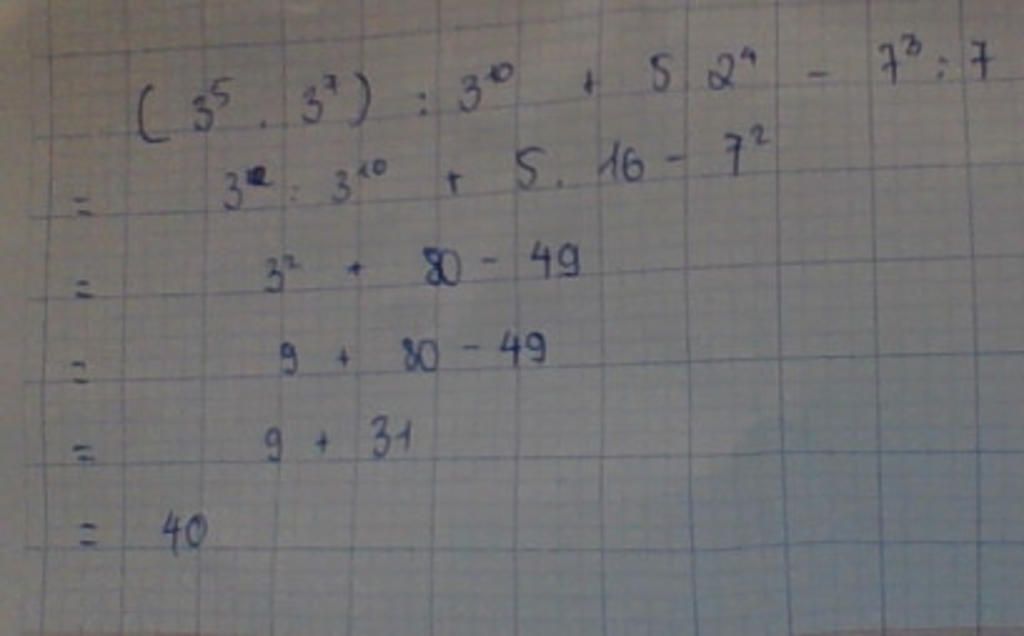 ( 3⁵ . 3⁷ ) : 3¹⁰ + 5 2⁴ - 7³ : 7
= 3¹² : 3¹⁰ + 5. 16 - 7²
= 3² + 80 - 49
= 9 + 80 - 49
= 9 + 31
= 40